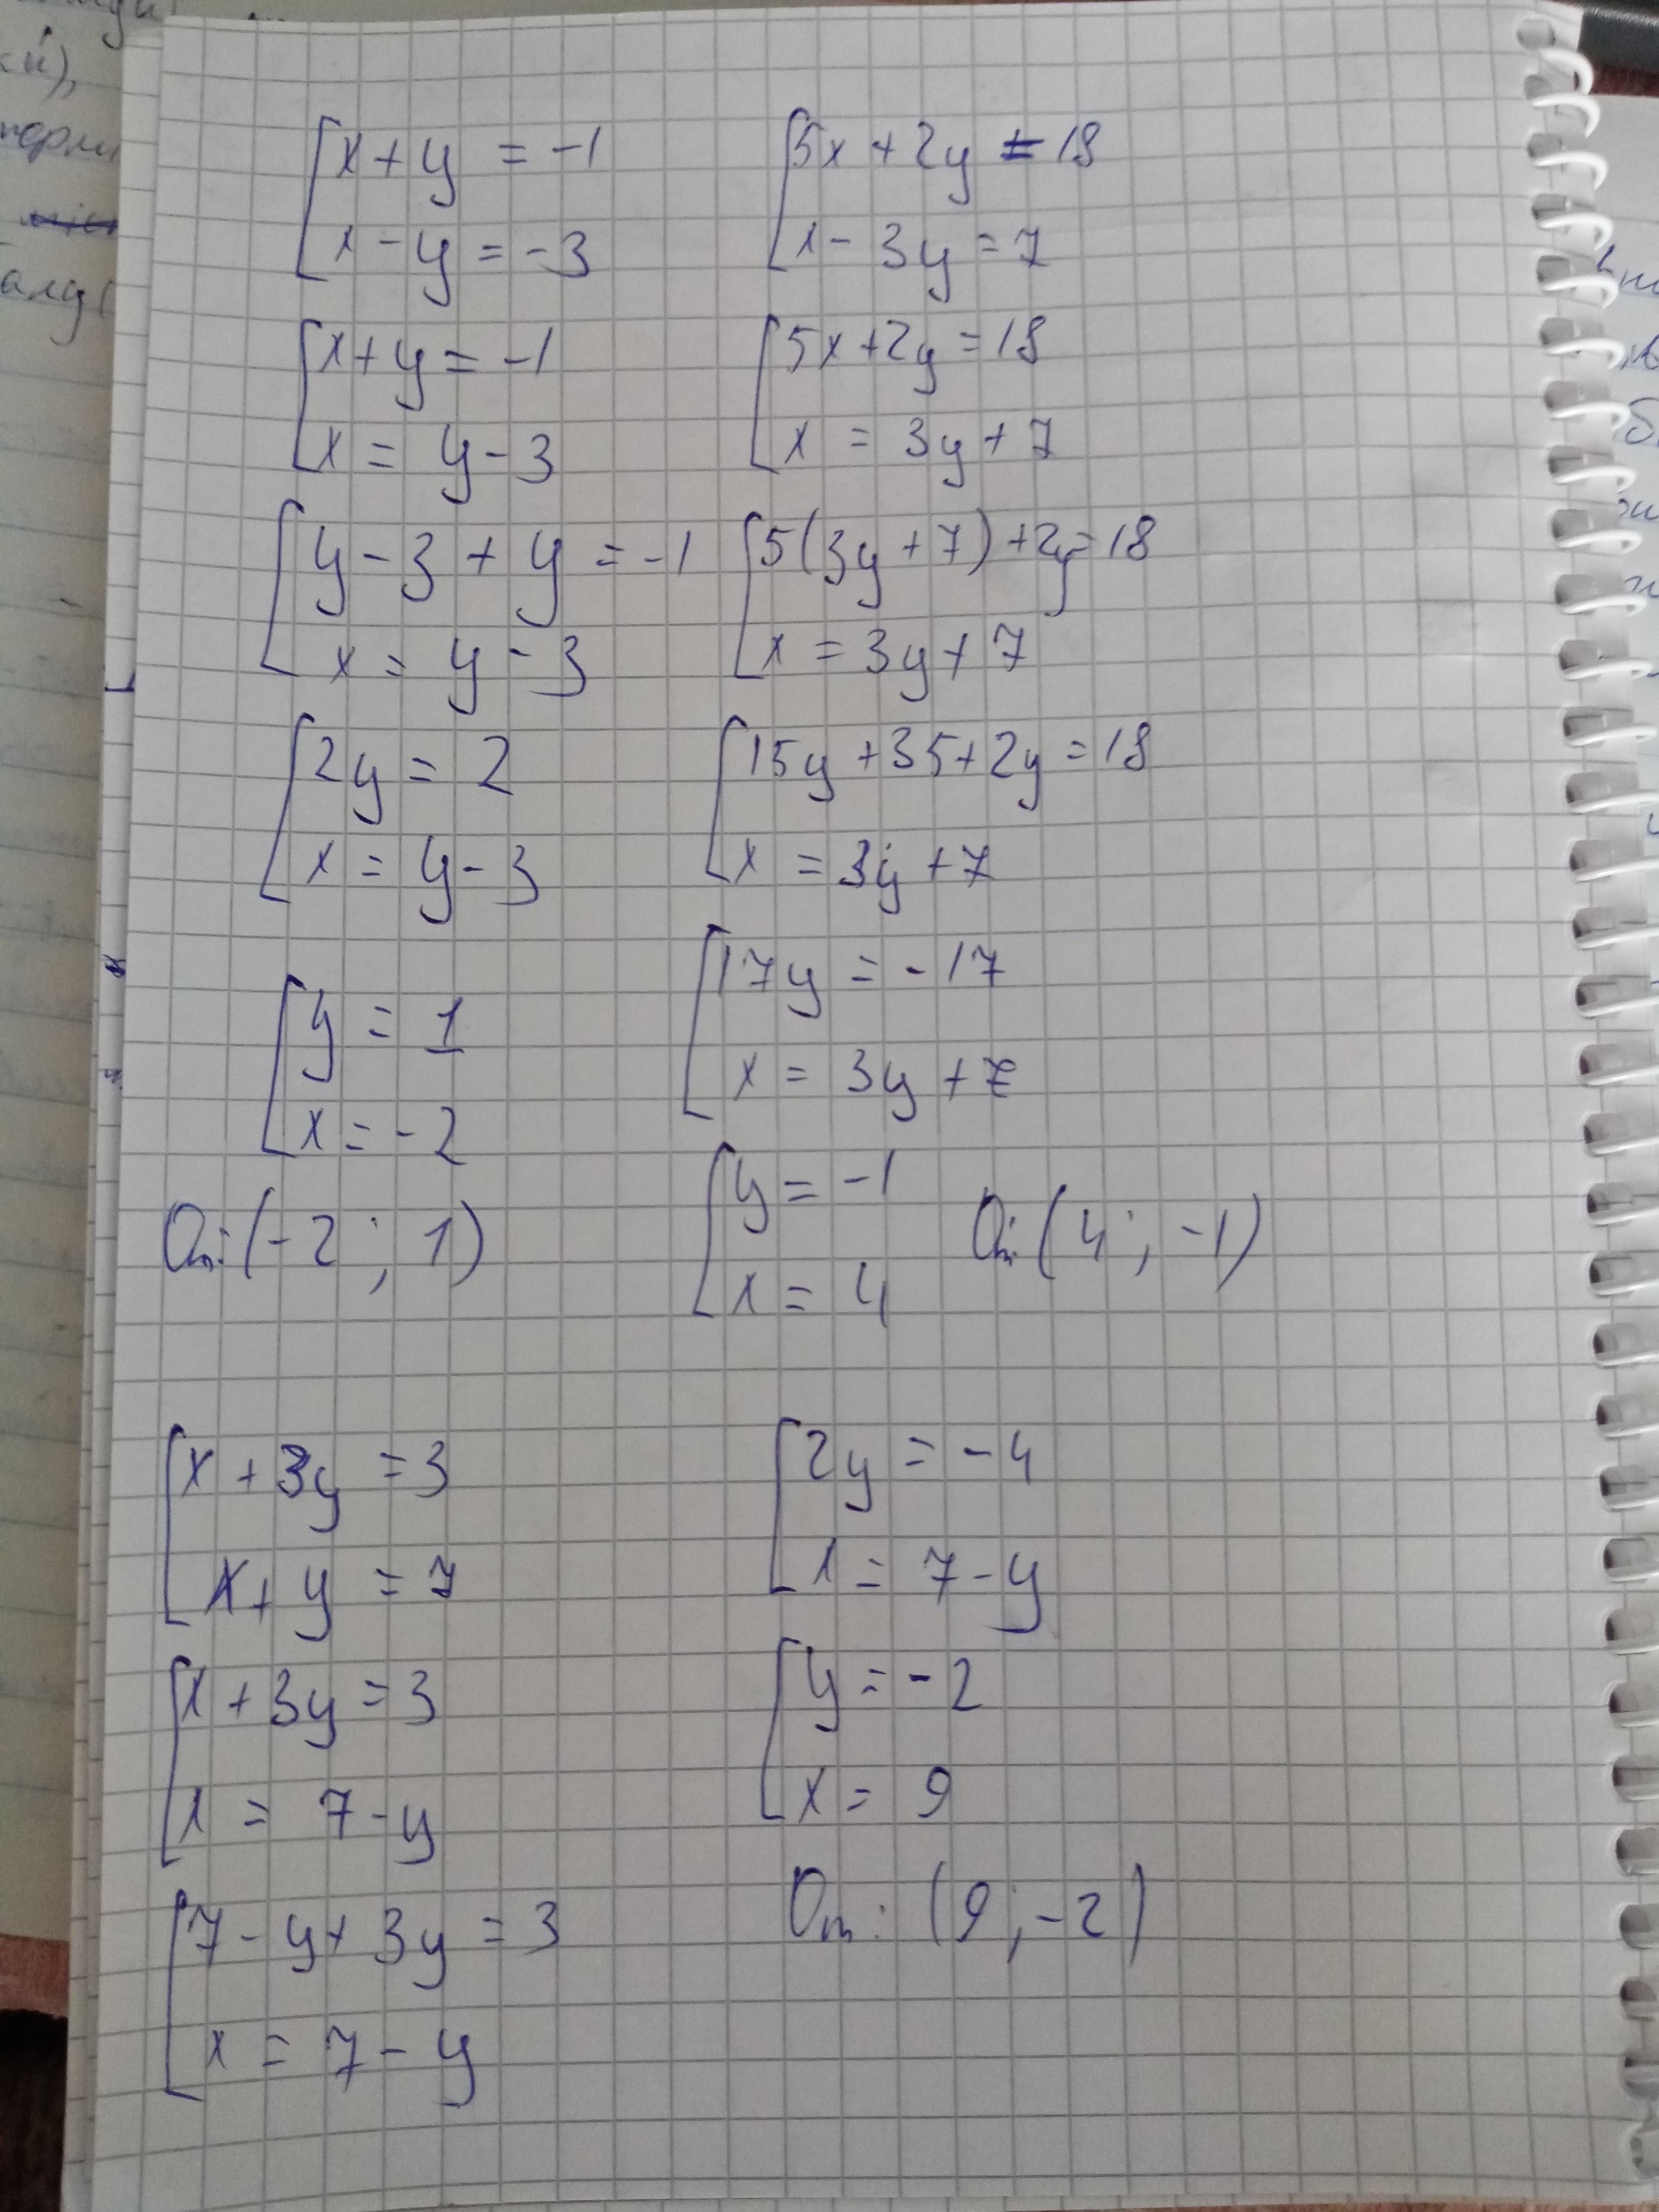 x + y = -1
x - y = -3
x + y = -1
x = y - 3
y - 3 + y = -1
x = y - 3
2y = 2
x = y - 3
y = 1
x = -2
От: (-2 ; 1)
5x + 2y = 18
x - 3y = 7
5x + 2y = 18
x = 3y + 7
5(3y + 7) + 2y = 18
x = 3y + 7
15y + 35 + 2y = 18
x = 3y + 7
17y = -17
x = 3y + 7
y = -1
x = 4
От: (4 ; -1)
x + 3y = 3
x + y = 7
x + 3y = 3
x = 7 - y
7 - y + 3y = 3
x = 7 - y
2y = -4
x = 7 - y
y = -2
x = 9
От: (9 ; -2)